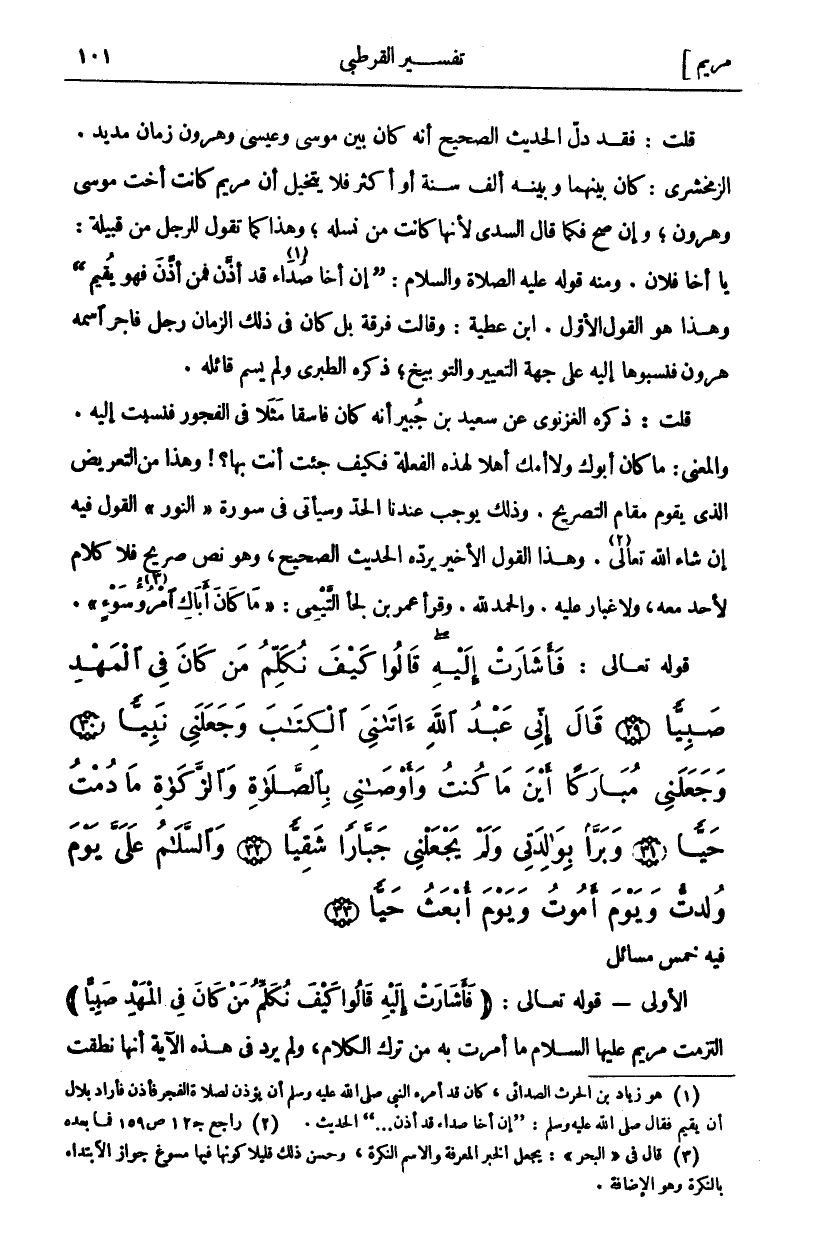 مريم ] تفســـير القرطبي ١٠١
قلت : فقـــد دلّ الحديث الصحيح أنه كان بين موسى وعيسى وهرون زمان مديد .
الزمخشرى : كان بينهما وبينـه ألف ســنة أو أكثر فلا يتخيل أن مريم كانت أخت موسى
وهـرون ؛ وإن صح فكما قال السدى لأنها كانت من نسله ؛ وهذا كما تقول للرجل من قبيلة :
يا أخا فلان . ومنه قوله عليه الصلاة والسلام : ”إن أخا صُدَاء(١) قد أذَّن فمن أذَّنَ فهو يُقيم“
وهـــذا هو القول الأوّل . ابن عطية : وقالت فرقة بل كان فى ذلك الزمان رجل فاجر ٱسمه
هرون فنسبوها إليه على جهة التعيير والتوبيخ؛ ذكره الطبرى ولم يسم قائله .
قلت : ذكره الغزنوى عن سعيد بن جُبير أنه كان فاسقا مَثَلًا فى الفجور فنسبت إليه .
والمعنى : ما كان أبوك ولا أمك أهلا لهذه الفعلة فكيف جئت أنت بها؟! وهذا من التعريض
الذى يقوم مقام التصريح . وذلك يوجب عندنا الحدّ وسيأتى فى سورة « النور » القول فيه
إن شاء الله تعالى(٢) . وهـــذا القول الأخير يردّه الحديث الصحيح، وهو نص صريح فلا كلام
لأحد معه، ولا غبار عليه . والحمد لله . وقرأ عمر بن لجأ التَّيْمِى : « مَا كَانَ أَبَاكِ ٱمْرُؤُ سَوْءٍ(٣) » .
قوله تعـالى : فَأَشَارَتْ إِلَيْهِ ۖ قَالُوا كَيْفَ نُكَلِّمُ مَن كَانَ فِى ٱلْمَهْدِ
صَبِيًّا ٢٩ قَالَ إِنِّى عَبْدُ ٱللَّهِ ءَاتَىٰنِىَ ٱلْكِتَٰبَ وَجَعَلَنِى نَبِيًّا ٣٠
وَجَعَلَنِى مُبَارَكًا أَيْنَ مَا كُنتُ وَأَوْصَٰنِى بِٱلصَّلَوٰةِ وَٱلزَّكَوٰةِ مَا دُمْتُ
حَيًّا ٣١ وَبَرًّا بِوَٰلِدَتِى وَلَمْ يَجْعَلْنِى جَبَّارًا شَقِيًّا ٣٢ وَٱلسَّلَٰمُ عَلَىَّ يَوْمَ
وُلِدتُّ وَيَوْمَ أَمُوتُ وَيَوْمَ أُبْعَثُ حَيًّا ٣٣
فيه خمس مسائل
الأولى — قوله تعـالى : ﴿ فَأَشَارَتْ إِلَيْهِ قَالُوا كَيْفَ نُكَلِّمُ مَنْ كَانَ فِى الْمَهْدِ صَبِيًّا ﴾
التزمت مريم عليها السـلام ما أمرت به من ترك الكلام، ولم يرد فى هـذه الآية أنها نطقت
(١) هو زياد بن الحرث الصدائى ، كان قد أمره النبى صلى الله عليه وسلم أن يؤذن لصلاة الفجر فأذن فأراد بلال
أن يقيم فقال صلى الله عليه وسلم : ”إن أخا صداء قد أذن...“ الحديث . (٢) راجع جـ١٢ ص١٥٩ فما بعده
(٣) قال فى « البحر » : يجعل الخبر المعرفة والاسم النكرة ، وحسن ذلك قليلا كونها فيها مسوغ جواز الأبتداء
بالنكرة وهو الإضافة .